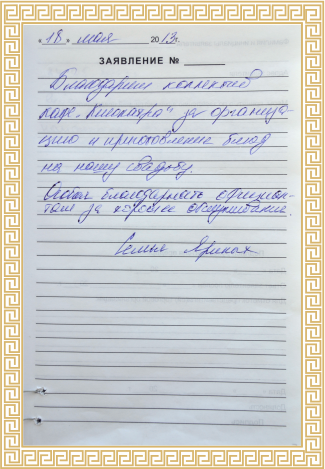 « 18 » мая 2013г.
ЗАЯВЛЕНИЕ № ____
Благодарим коллектив
кафе за организа-
цию и приготовление блюд
на нашу свадьбу.
Особая благодарность официан-
там за хорошее обслуживание.
Семья